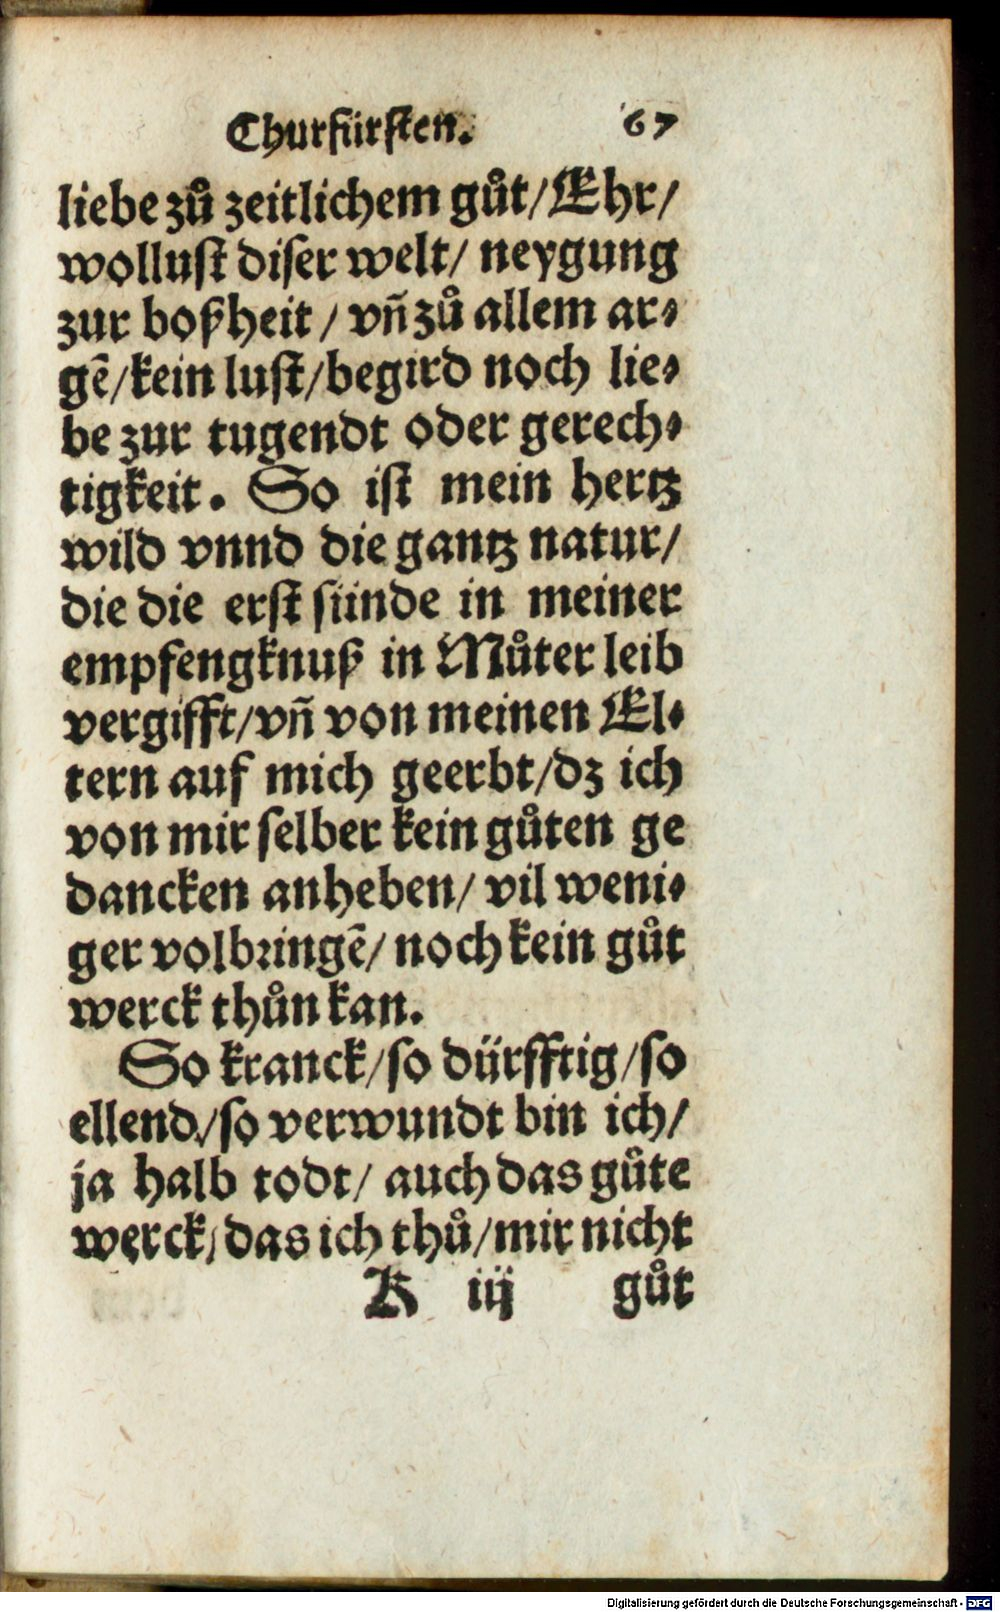 Churfürsten. 67
liebe zů zeitlichem gůt/Ehr/
wollust diser welt/ neygung
zur boßheit / vn̄ zů allem ar⸗
gē/kein lust/begird noch lie⸗
be zur tugendt oder gerech⸗
tigkeit. So ist mein hertz
wild vnnd die gantz natur/
die die erst sünde in meiner
empfengknuß in Můter leib
vergifft/vn̄ von meinen El⸗
tern auf mich geerbt/dz ich
von mir selber kein gůten ge
dancken anheben/ vil weni⸗
ger volbringē/ noch kein gůt
werck thůn kan.
So kranck/so dürfftig/so
ellend/so verwundt bin ich/
ja halb todt/ auch das gůte
werck/das ich thů/mir nicht
K iij gůt
Digitalisierung gefördert durch die Deutsche Forschungsgemeinschaft - DFG